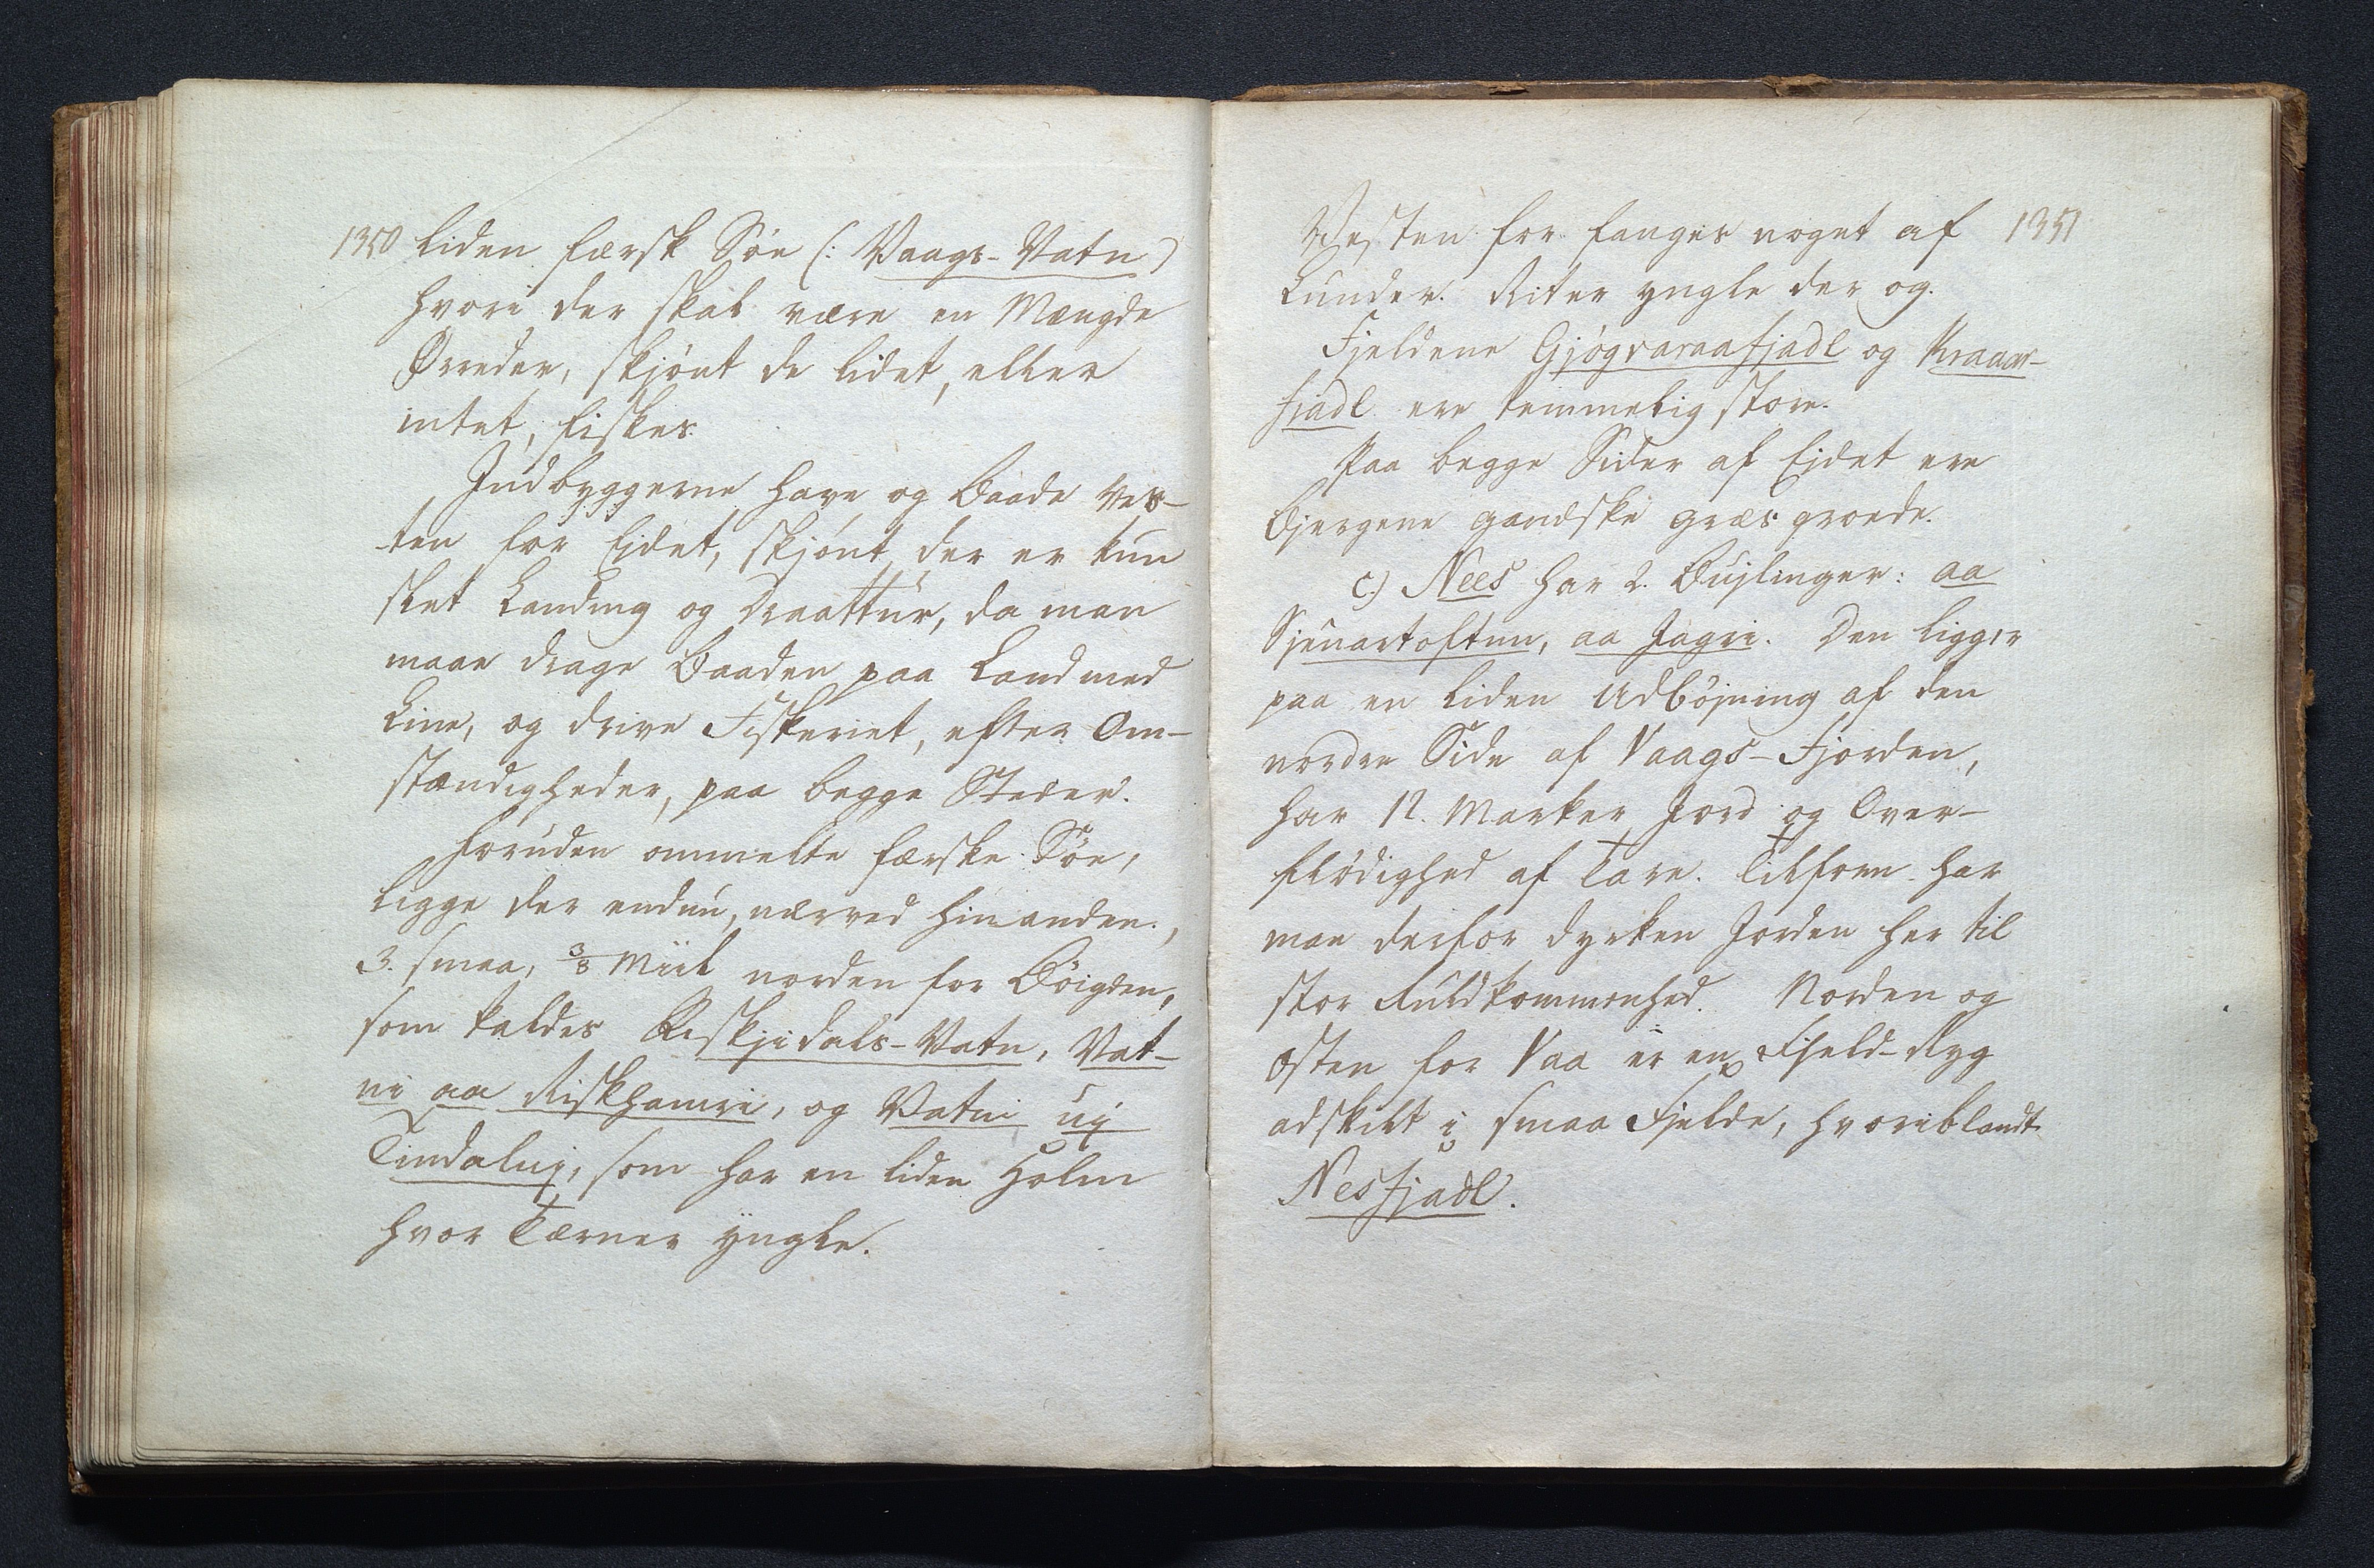 1350 liden færsk Søe (: Vaags-Vatn)
hvori der skal være en Mængde
Ørreder, skjønt de lidet, eller
intet, fiskes.
Indbyggerne have og Baade ves-
ten for Eidet, skjønt der er kun
slet Landing og Draattur, da man
maae drage Baaden paa Land med
Line, og drive Fiskeriet, efter Om-
stændigheder, paa begge Steder.
Foruden ommelte færske Søe,
ligge der endnu, nærved hinanden,
3. smaa, 3/8 Miil norden for Bøigden,
som kaldes Ryskjidals-Vatn, Vat-
ni aa Riskhamri, og Vatni uj
Tindaluj, som har en liden Holm
hvor Tærner yngle.
Vesten for fanges noget af 1351
Lunder. Riter yngle der og.
Fjeldene Gjøgvaraafjadl og Kraaar-
fjadl ere temmelig store.
Paa begge Sider af Eidet ere
Bjergene gandske græsgroede.
c.) Nees har 2. Bujlinger: aa
Sjenartoftun, aa Jagri. Den ligger
paa en liden Udbøjning af den
nordre Side af Vaags-Fjorden,
har 12. Marker Jord og Over-
flødighed af Tare. Tilforn har
man derfor dyrken Jorden her til
stor Fuldkommenhed. Norden og
osten for Vaa er en Fjeld-Ryg
adskilt i smaa Fjelde, hvoriblandt
Nesfjadl.